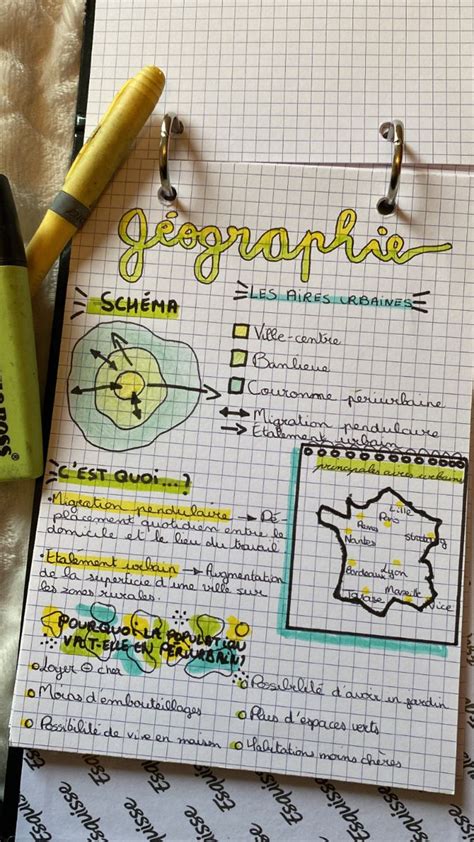 Géographie
SCHÉMA
LES AIRES URBAINES
Ville-centre
Banlieue
Couronne périurbaine
Migration pendulaire
Etalement urbain
C'EST QUOI...?
•Migration pendulaire → Dé-
placement quotidien entre le
domicile et le lieu du travail
•Etalement urbain → Augmentation
de la superficie d'une ville sur
les zones rurales.
principales aires urbaines
Lille
Paris
Renes
Strasbourg
Nantes
Bordeaux
Lyon
Toulouse
Marseille
Nice
POURQUOI LA POPULATION
VAIT-ELLE EN PÉRIURBAIN?
Loyer ⊖ cher
Moins d'embouteillages
Possibilité de vivre en maison
Possibilité d'avoir un jardin
Plus d'espaces verts
Habitations moins chères
BOSS
Esquisse Esquisse Esquisse Esquisse Esquisse Esquisse